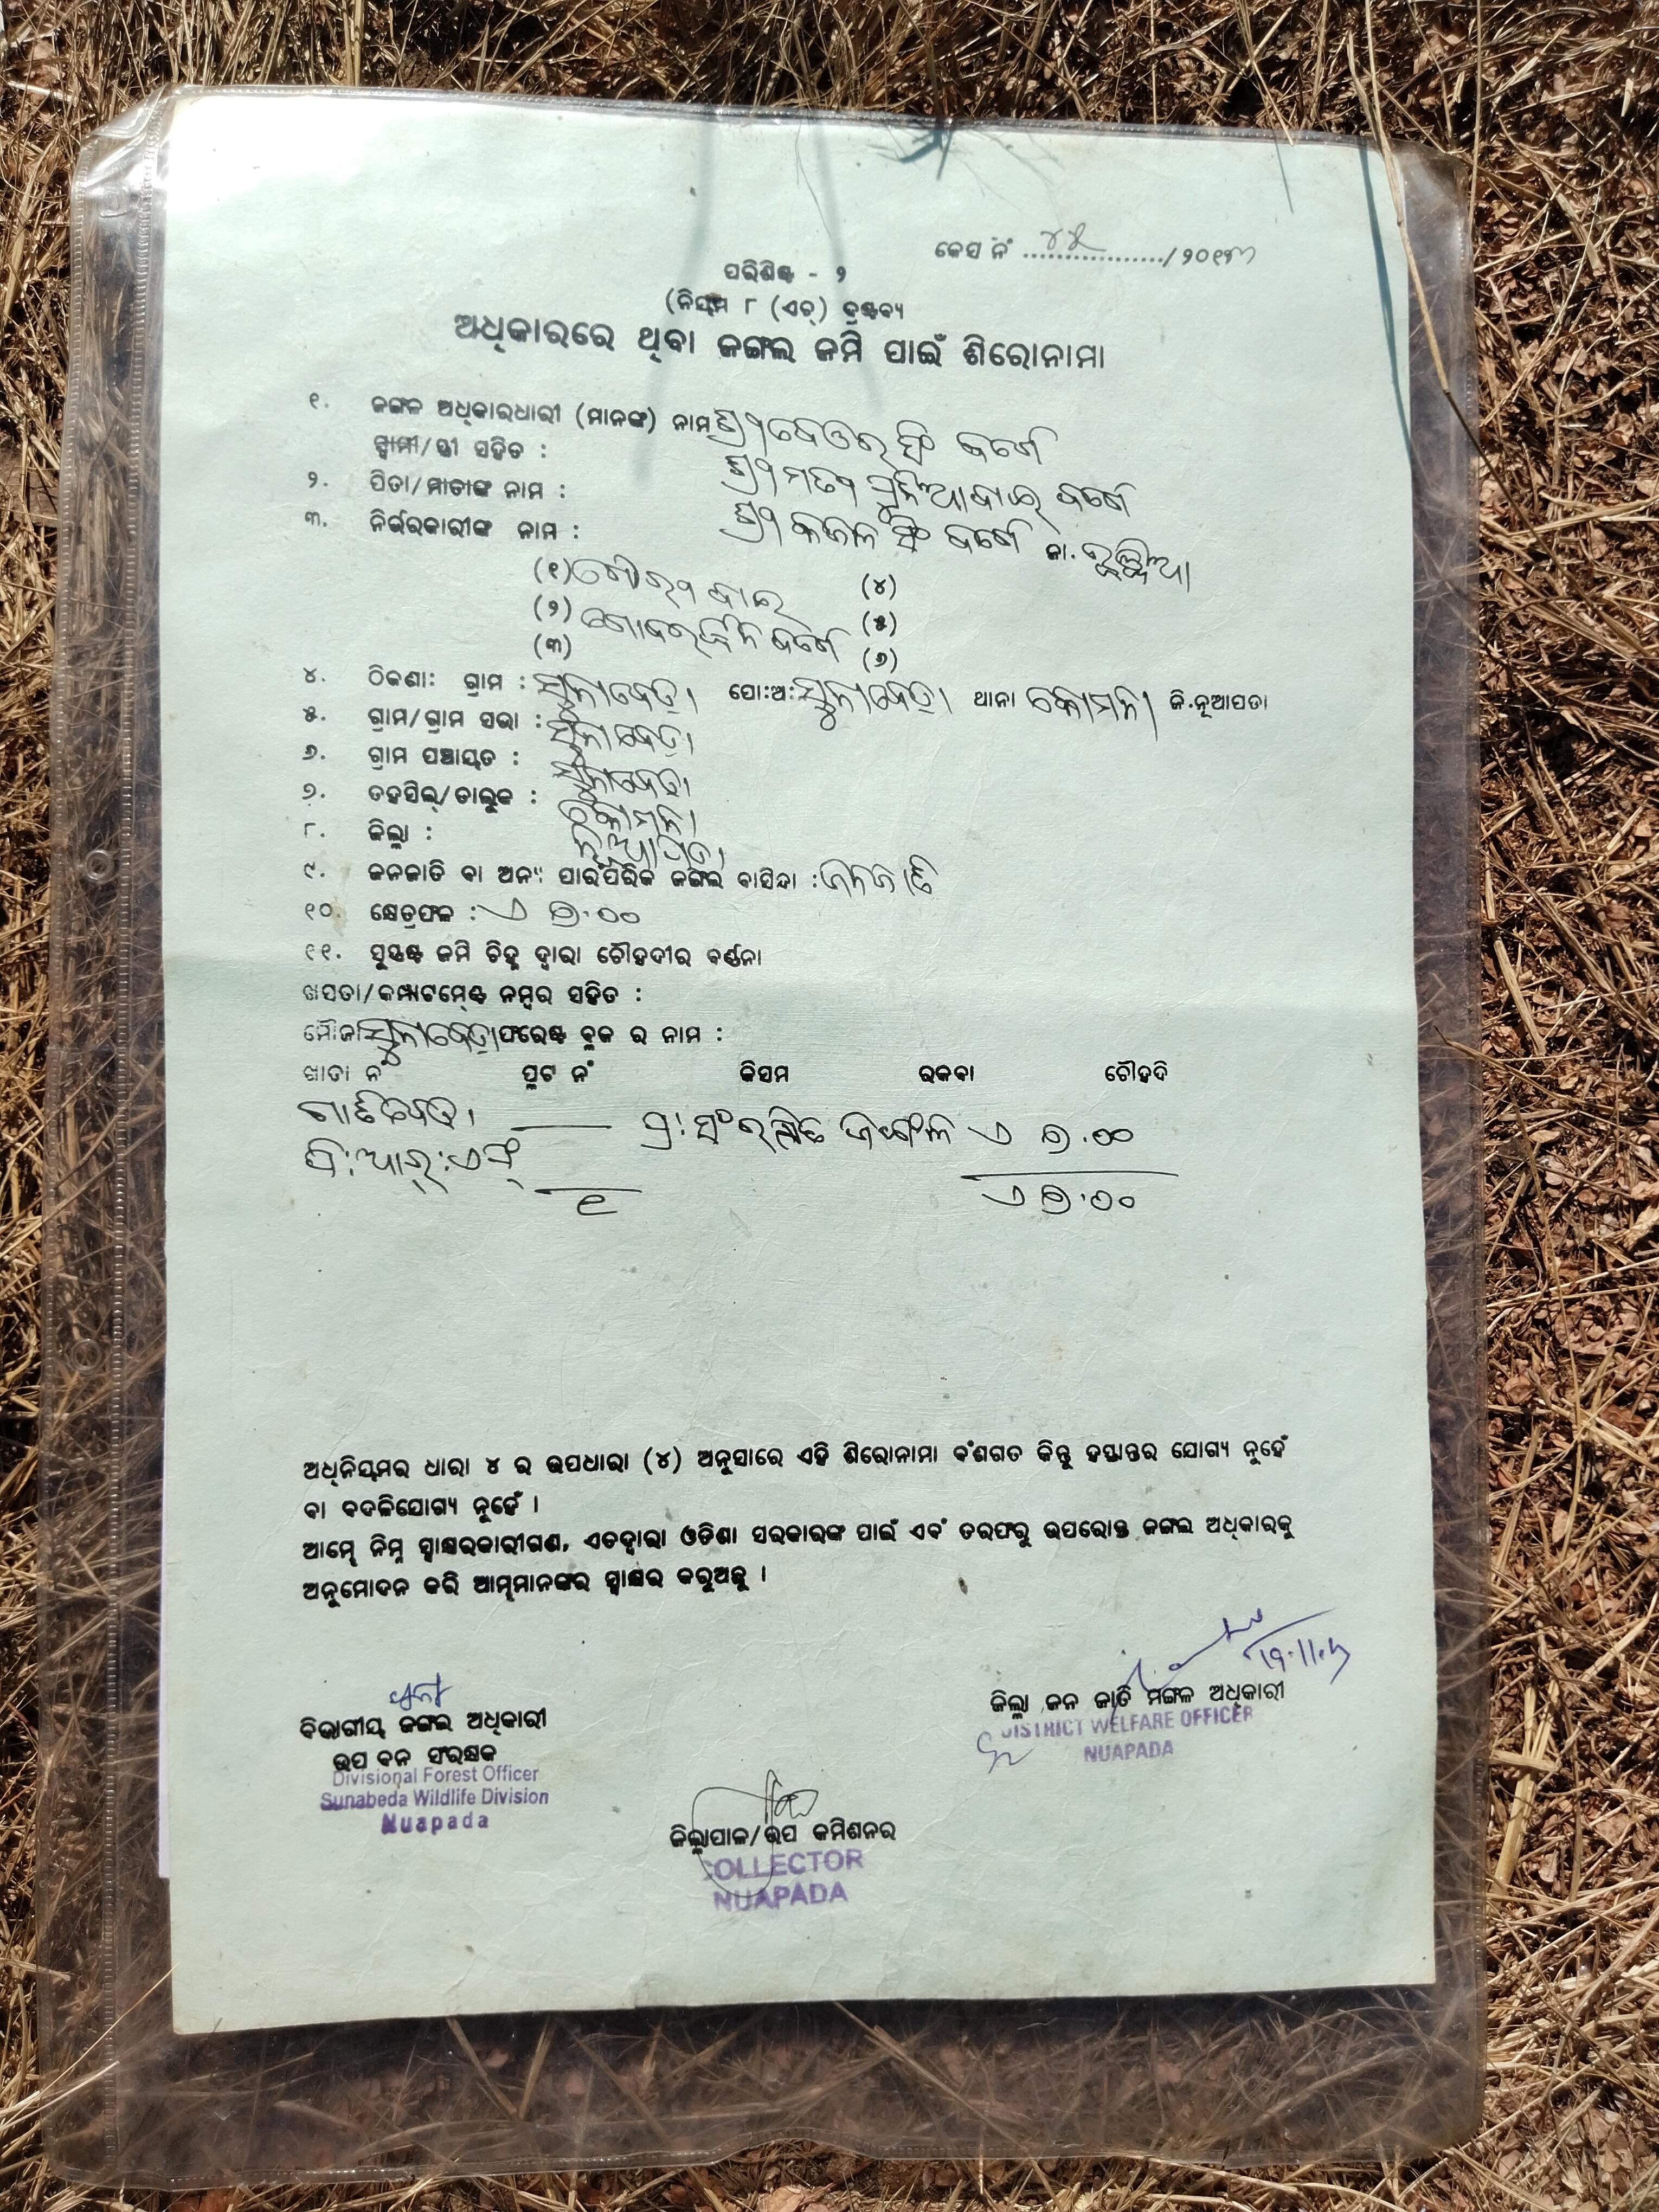 କେସ ନଂ ୪୫ /୨୦୧୩
ପରିଶିଷ୍ଟ - ୨
(ନିୟମ ୮ (ଏଚ୍) ଦ୍ରଷ୍ଟବ୍ୟ
ଅଧିକାରରେ ଥିବା ଜଙ୍ଗଲ ଜମି ପାଇଁ ଶିରୋନାମା
୧. ଜଙ୍ଗଳ ଅଧିକାରଧାରୀ (ମାନଙ୍କ) ନାମ ସିଂ
ସ୍ୱାମୀ/ସ୍ତ୍ରୀ ସହିତ : ଶ୍ରୀମତୀ
୨. ପିତା/ମାତାଙ୍କ ନାମ : ଶ୍ରୀ ସିଂ ଜା.
୩. ନିର୍ଭରକାରୀଙ୍କ ନାମ :
(୧) (୪)
(୨) (୫)
(୩) (୬)
୪. ଠିକଣା: ଗ୍ରାମ : ସୁନାବେଡ଼ା ପୋ:ଅ: ସୁନାବେଡ଼ା ଥାନା କୋମନା ଜି.ନୂଆପଡା
୫. ଗ୍ରାମ/ଗ୍ରାମ ସଭା : ସୁନାବେଡ଼ା
୬. ଗ୍ରାମ ପଞ୍ଚାୟତ : ସୁନାବେଡ଼ା
୭. ତହସିଲ୍/ତାଲୁକ : କୋମନା
୮. ଜିଲ୍ଲା : ନୂଆପଡ଼ା
୯. ଜନଜାତି ବା ଅନ୍ୟ ପାରଂପରିକ ଜଙ୍ଗଲ ବାସିନ୍ଦା : ଜନଜାତି
୧୦. କ୍ଷେତ୍ରଫଳ : ଏ ୭.୦୦
୧୧. ସୁସ୍ପଷ୍ଟ ଜମି ଚିହ୍ନ ଦ୍ୱାରା ଚୌହଦୀର ବର୍ଣ୍ଣନା
ଖସଡା/କମ୍ପାଟମେଣ୍ଟ ନମ୍ବର ସହିତ :
ମୌଜା ସୁନାବେଡ଼ା ଫରେଷ୍ଟ ବ୍ଲକ ର ନାମ :
ଖାତା ନଂ ପ୍ଲଟ ନଂ କିସମ ରକବା ଚୌହଦି
ପ୍ର: ସଂରକ୍ଷିତ ଜଙ୍ଗଲ ଏ ୭.୦୦
ପି:ଆର୍:ଏଫ୍
୧ ଏ ୭.୦୦
ଅଧିନିୟମର ଧାରା ୪ ର ଉପଧାରା (୪) ଅନୁସାରେ ଏହି ଶିରୋନାମା ବଂଶଗତ କିନ୍ତୁ ହସ୍ତାନ୍ତର ଯୋଗ୍ୟ ନୁହେଁ
ବା ବଦଳିଯୋଗ୍ୟ ନୁହେଁ ।
ଆମ୍ଭେ ନିମ୍ନ ସ୍ୱାକ୍ଷରକାରୀଗଣ, ଏତଦ୍ୱାରା ଓଡିଶା ସରକାରଙ୍କ ପାଇଁ ଏବଂ ତରଫରୁ ଉପରୋକ୍ତ ଜଙ୍ଗଲ ଅଧିକାରକୁ
ଅନୁମୋଦନ କରି ଆମ୍ଭମାନଙ୍କର ସ୍ୱାକ୍ଷର କରୁଅଛୁ ।
ଜିଲ୍ଲା ଜନ ଜାତି ମଙ୍ଗଳ ଅଧିକାରୀ
DISTRICT WELFARE OFFICER
NUAPADA
ବିଭାଗୀୟ ଜଙ୍ଗଲ ଅଧିକାରୀ
ଉପ ବନ ସଂରକ୍ଷକ
Divisional Forest Officer
Sunabeda Wildlife Division
Nuapada
ଜିଲ୍ଲାପାଳ/ଉପ କମିଶନର
COLLECTOR
NUAPADA